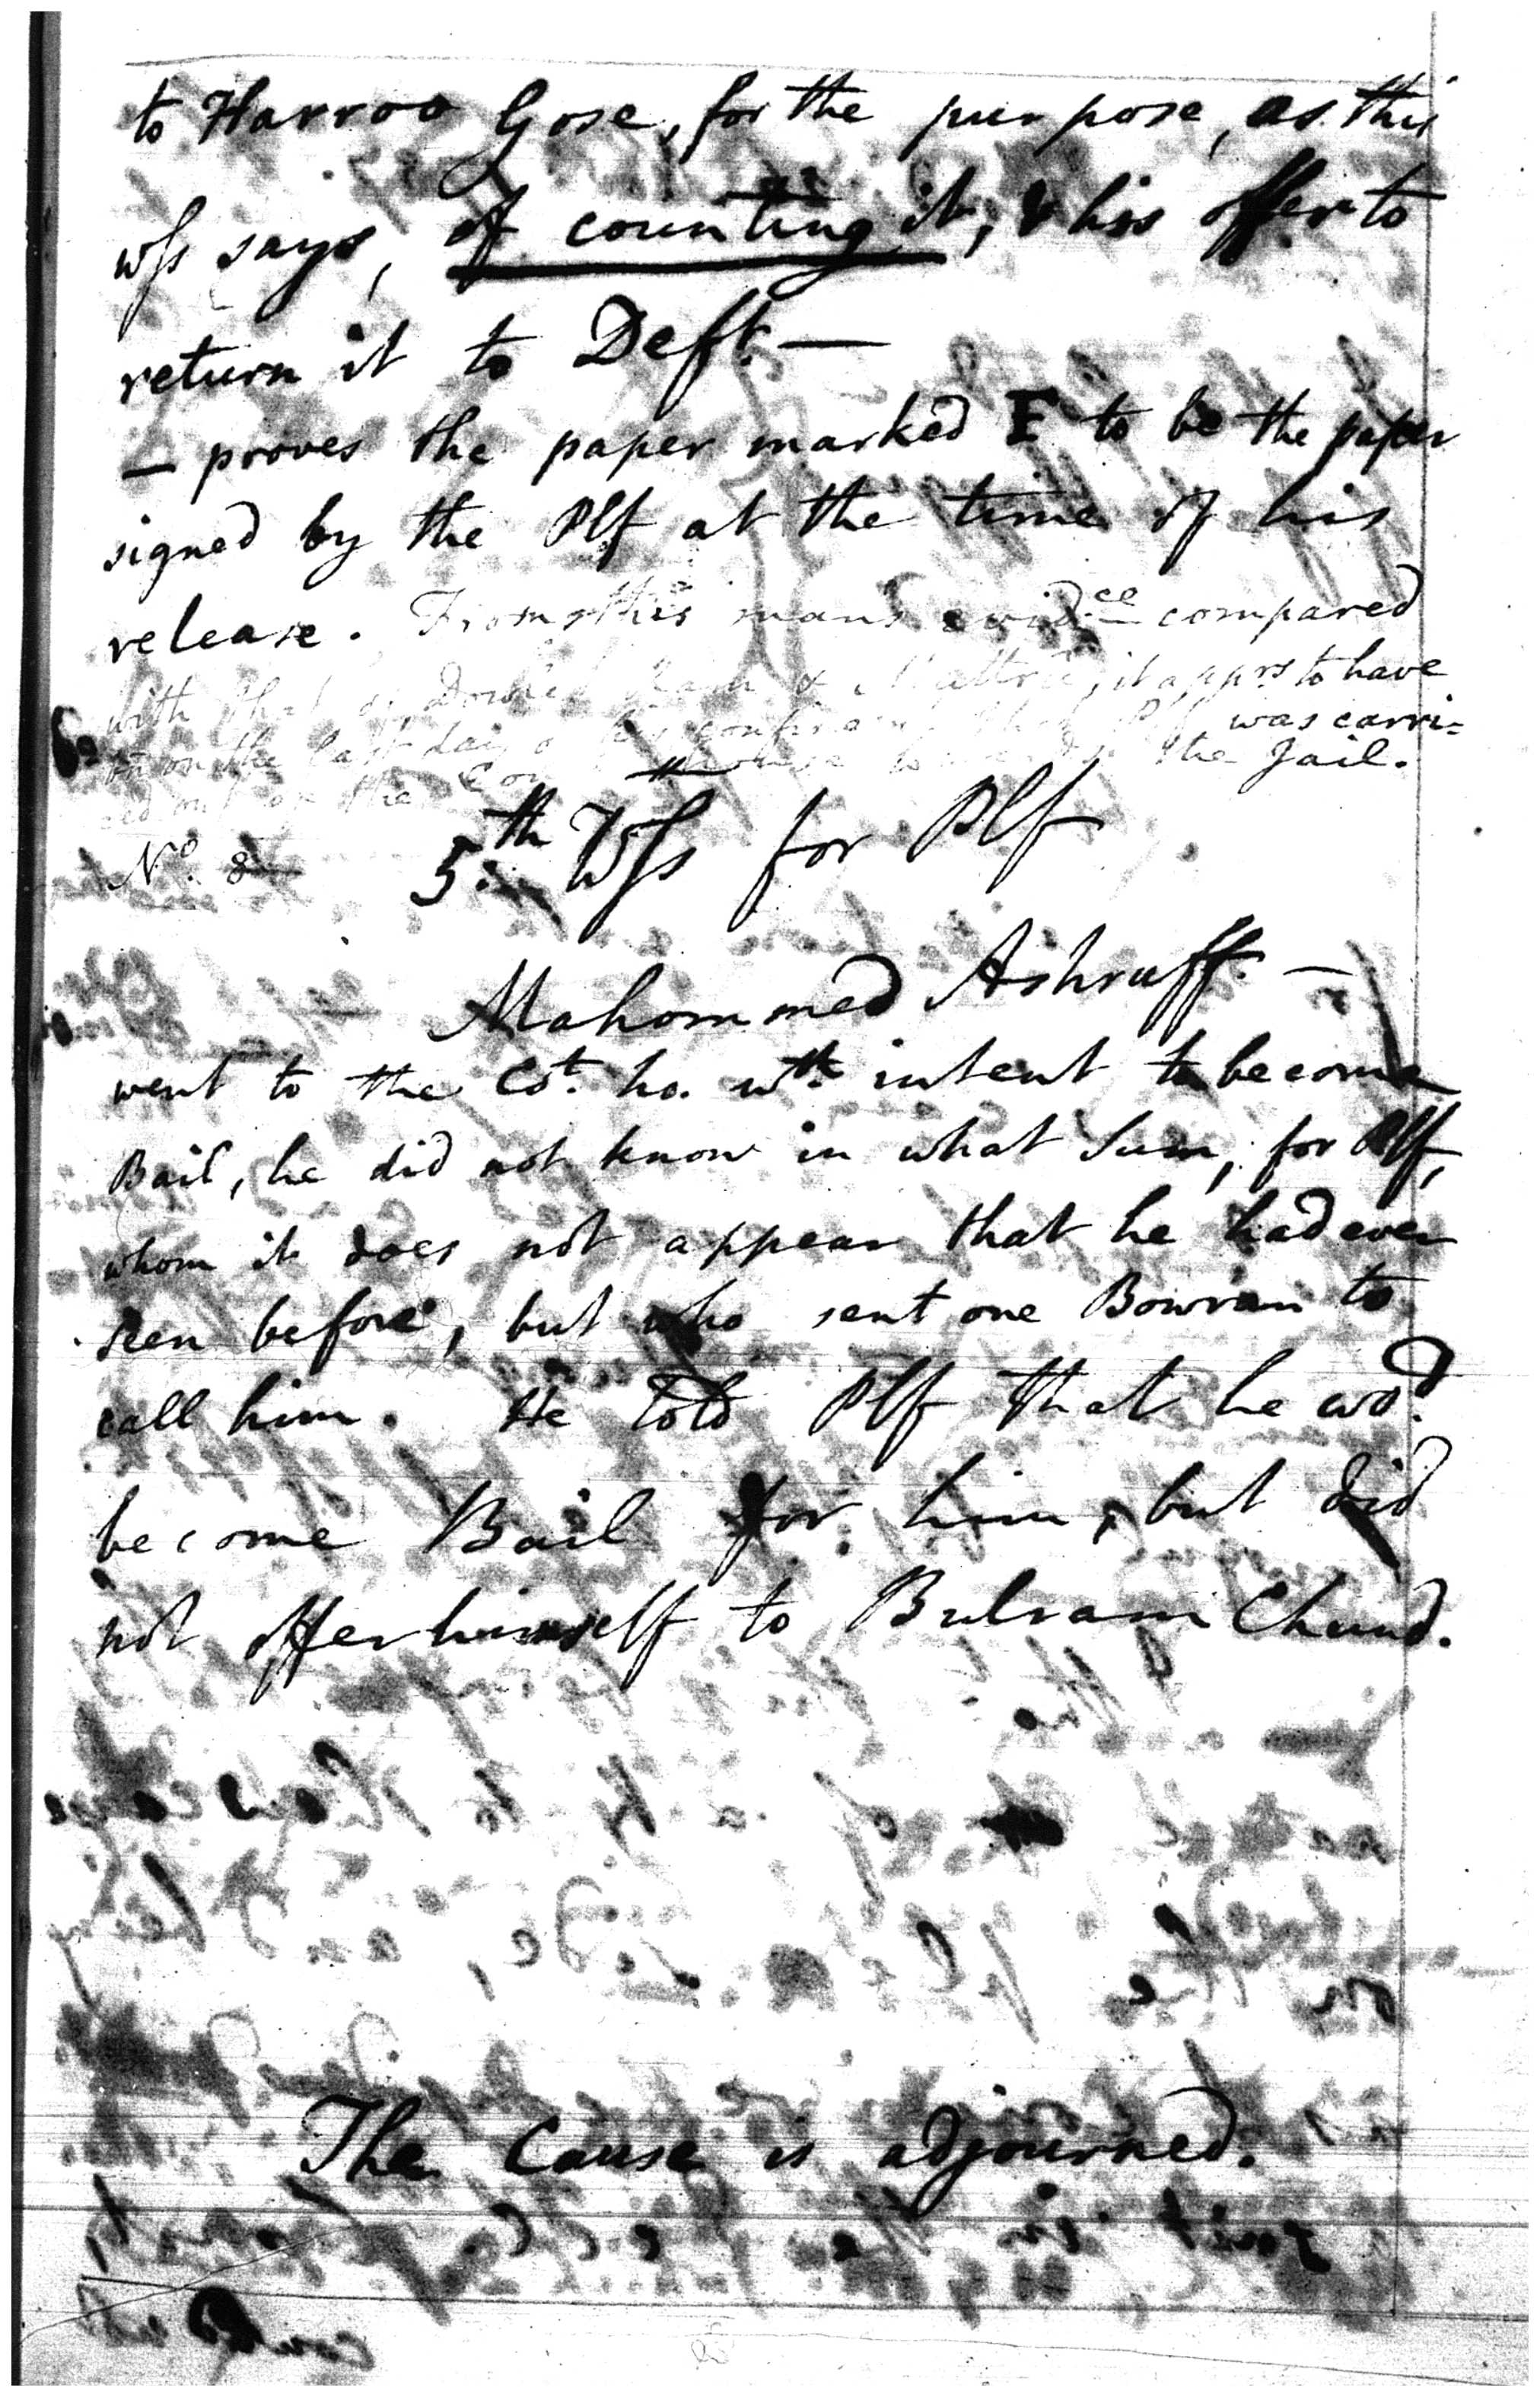 to Harroo Gose, for the purpose, as this
wss says, of counting it, & his offer to
return it to Deft. —
— proves the paper marked F to be the paper
signed by the Plf at the time of his
release. From this mans evid.ce compared
with that of & it apprs to have
on the last day of his Plf was carri=
ed out of the the Jail.
No. 8 5.th Wss for Plf
Mahommed Ashruff. —
went to the Ct. ho. wth. intent to become
Bail, he did not know in what Sum, for Plf,
whom it does not appear that he had ever
seen before, but who sent one Bowran to
call him. He told Plf that he wod.
become Bail for him, but did
not offer himself to Bulram Chund.
The Cause is adjourned.